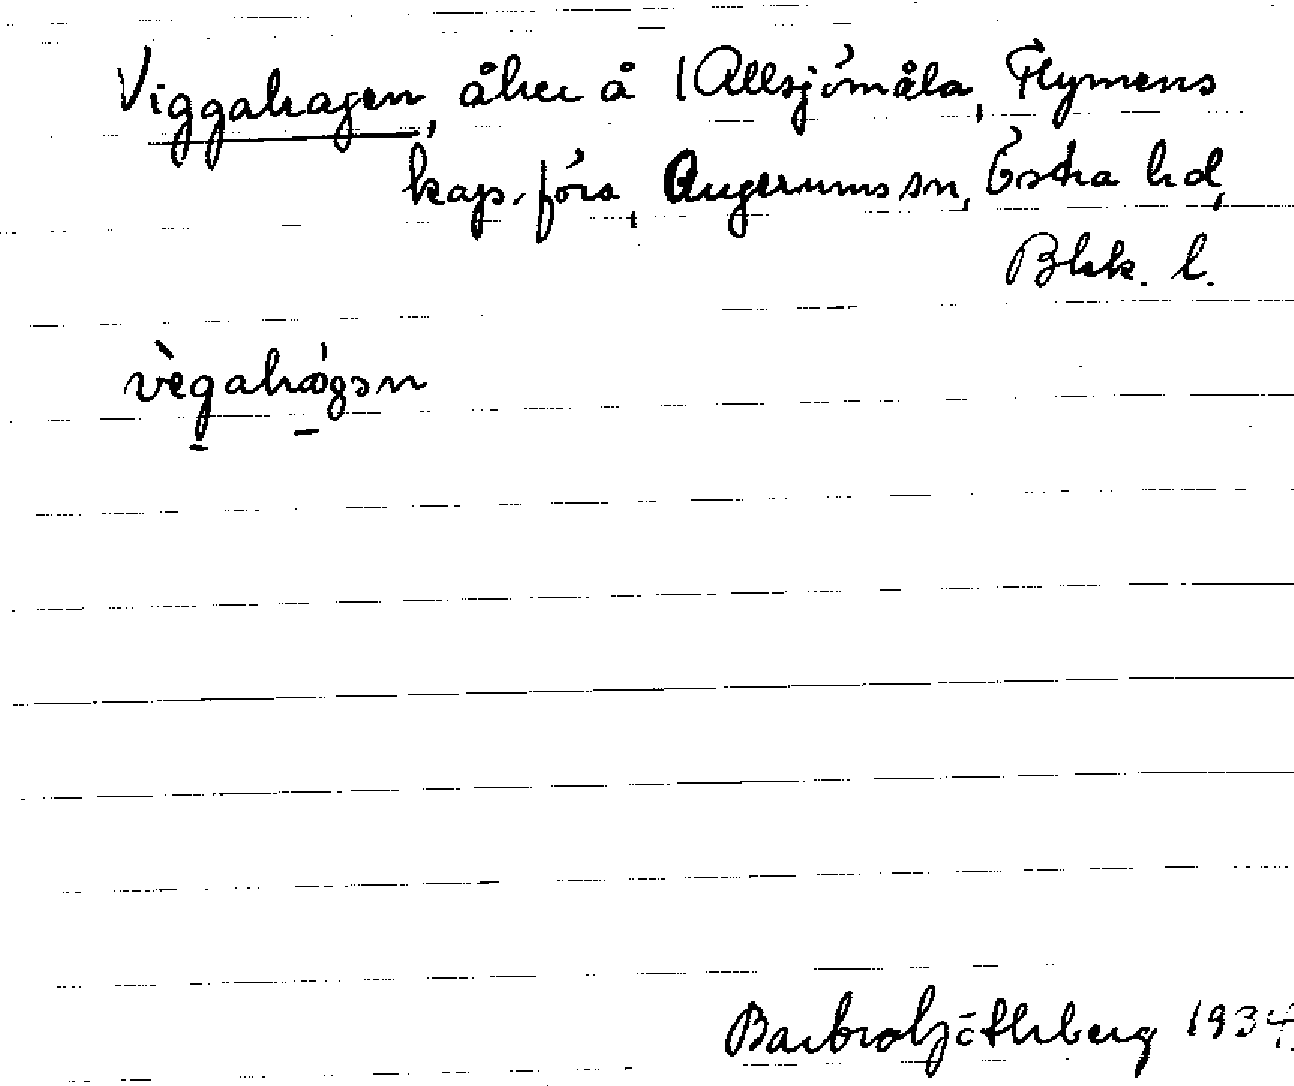 Viggahagen, åker å 1 Allsjömåla, Flymens
kap. förs, Augerums sn, Östra hd,
Blek. l.
vègahǻgən
Barbro Götherberg 1934.